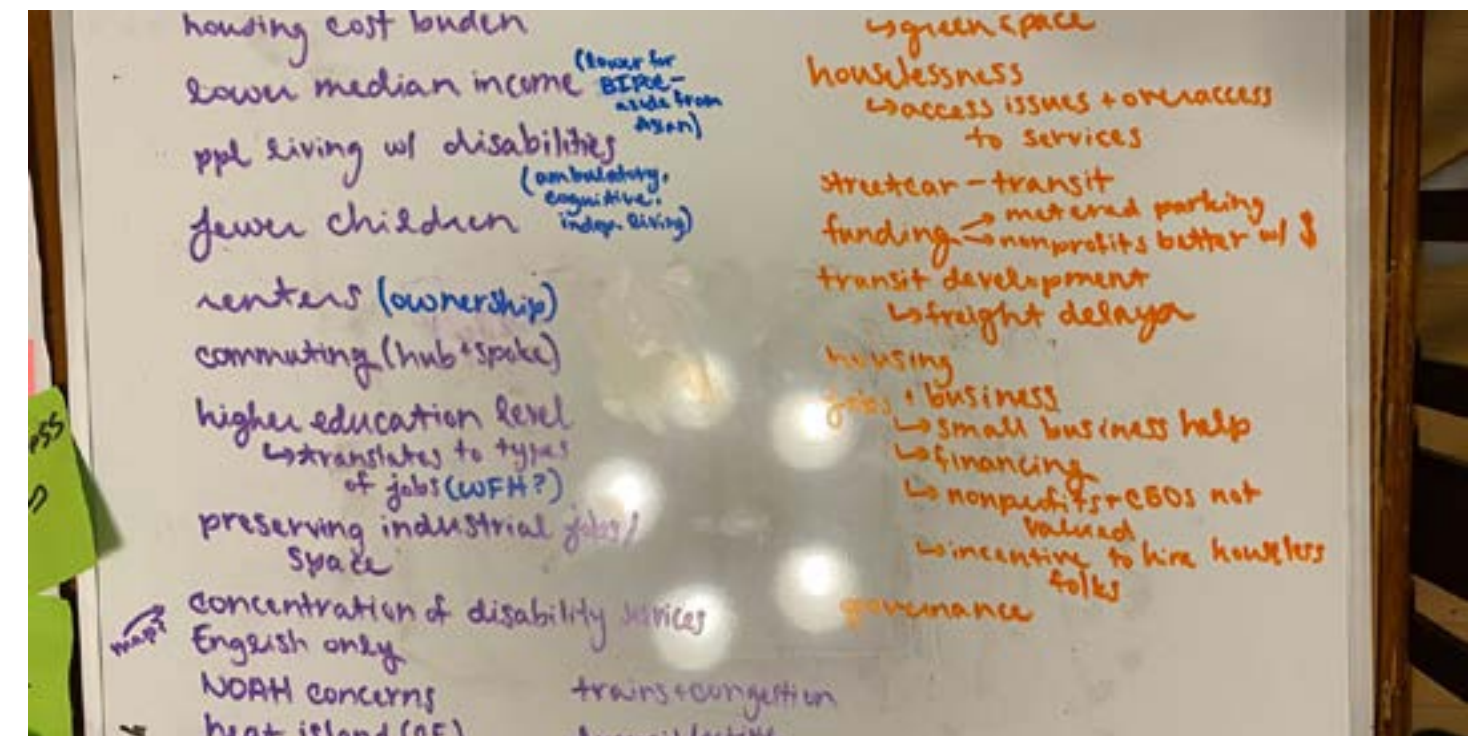 housing cost buden
lower median income (lower for
BIPOC -
aside from
Asian)
ppl living w/ disabilities
(ambulatory,
cognitive,
indep. living)
fewer children
renters (ownership)
commuting (hub + spoke)
higher education level
↳ translates to types
of jobs (WFH?)
preserving industrial jobs/
space
map?
concentration of disability services
English only
NOAH concerns
heat island
trains + congestion
↳ greenspace
houselessness
↳ access issues + overaccess
to services
streetcar - transit
funding → metered parking
→ nonprofits better w/ $
transit development
↳ freight delays
housing
jobs + business
↳ small business help
↳ financing
↳ nonprofits + CBOs not
valued
↳ incentive to hire houseless
folks
governance